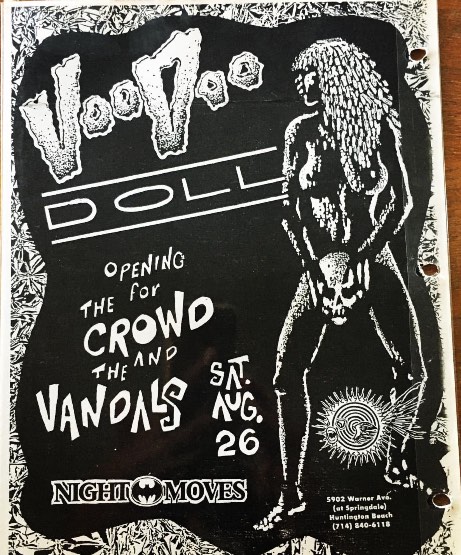 VOODOO
DOLL
OPENING
THE for
CROWD
THE AND
VANDALS
SAT.
AUG.
26
NIGHT MOVES
5902 Warner Ave.
(at Springdale)
Huntington Beach
(714) 840-6118